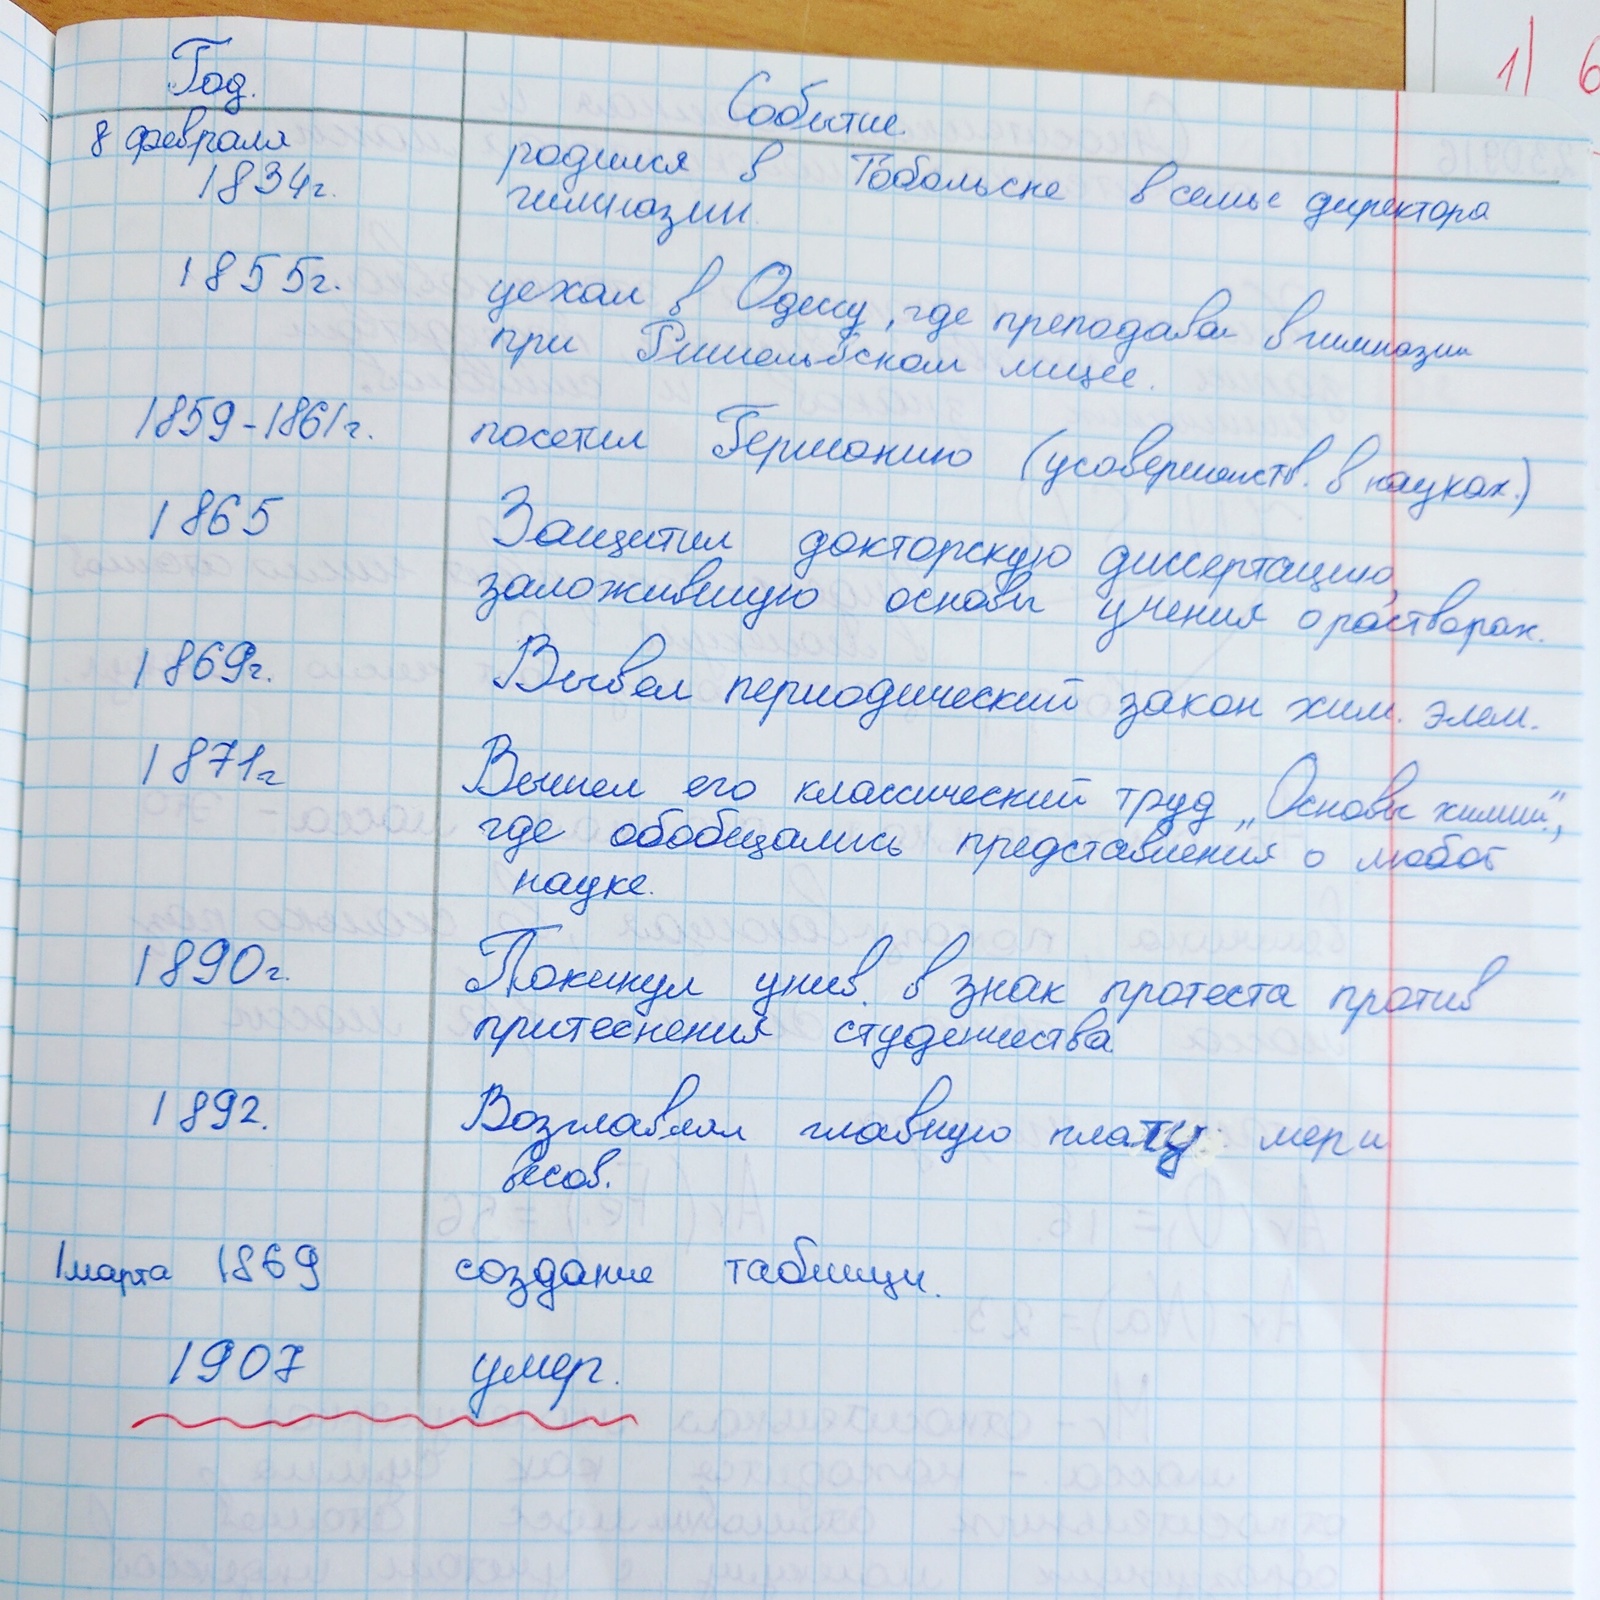 1) 6
Год. Событие.
8 февраля родился в Тобольске в семье директора
1834г. гимназии.
1855г. уехал в Одессу, где преподавал в гимназии
при Ришельевском лицее.
1859-1861г. посетил Германию (усовершенств. в науках.)
1865 Защитил докторскую диссертацию,
заложившую основы учения о растворах.
1869г. Вывел периодический закон хим. элем.
1871г Вышел его классический труд „Основы химии",
где обобщались представления о любой
науке.
1890г. Покинул унив. в знак протеста против
притеснения студенчества
1892. Возглавлял главную плату мер и
весов.
1 марта 1869 создание таблицы.
1907 умер.